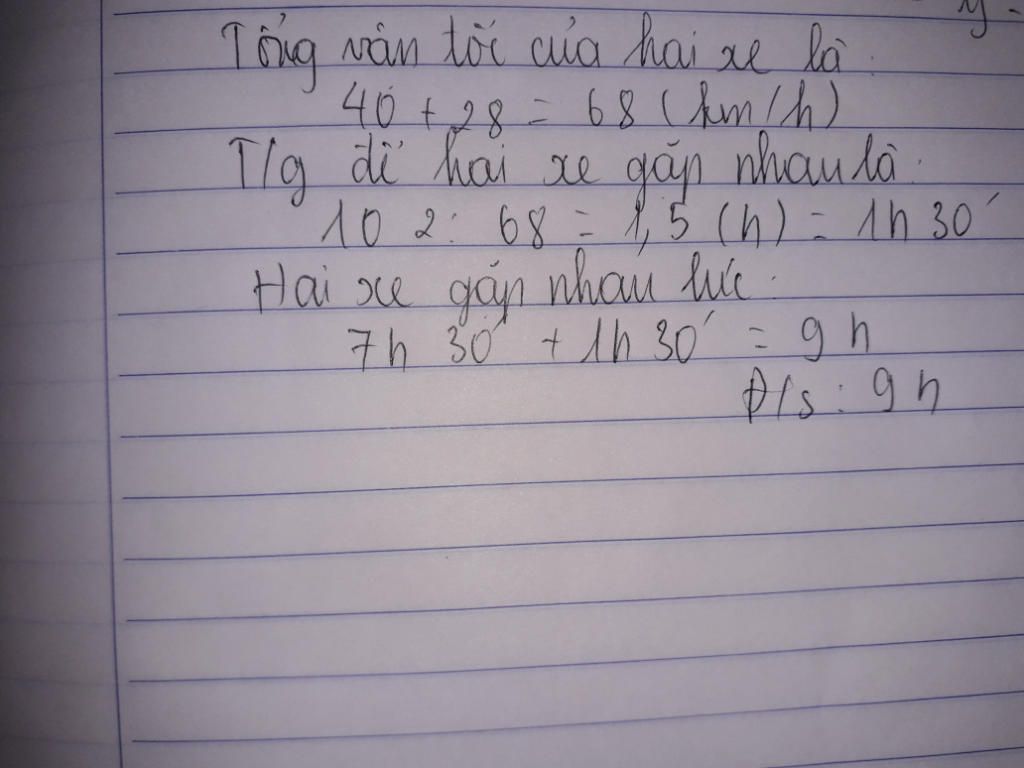 Tổng vân tốc của hai xe là:
40 + 28 = 68 (km/h)
T/g để hai xe gặp nhau là:
10 2 : 68 = 1,5 (h) = 1h 30'
Hai xe gặp nhau lúc:
7h 30' + 1h 30' = 9 h
Đ/s : 9 h